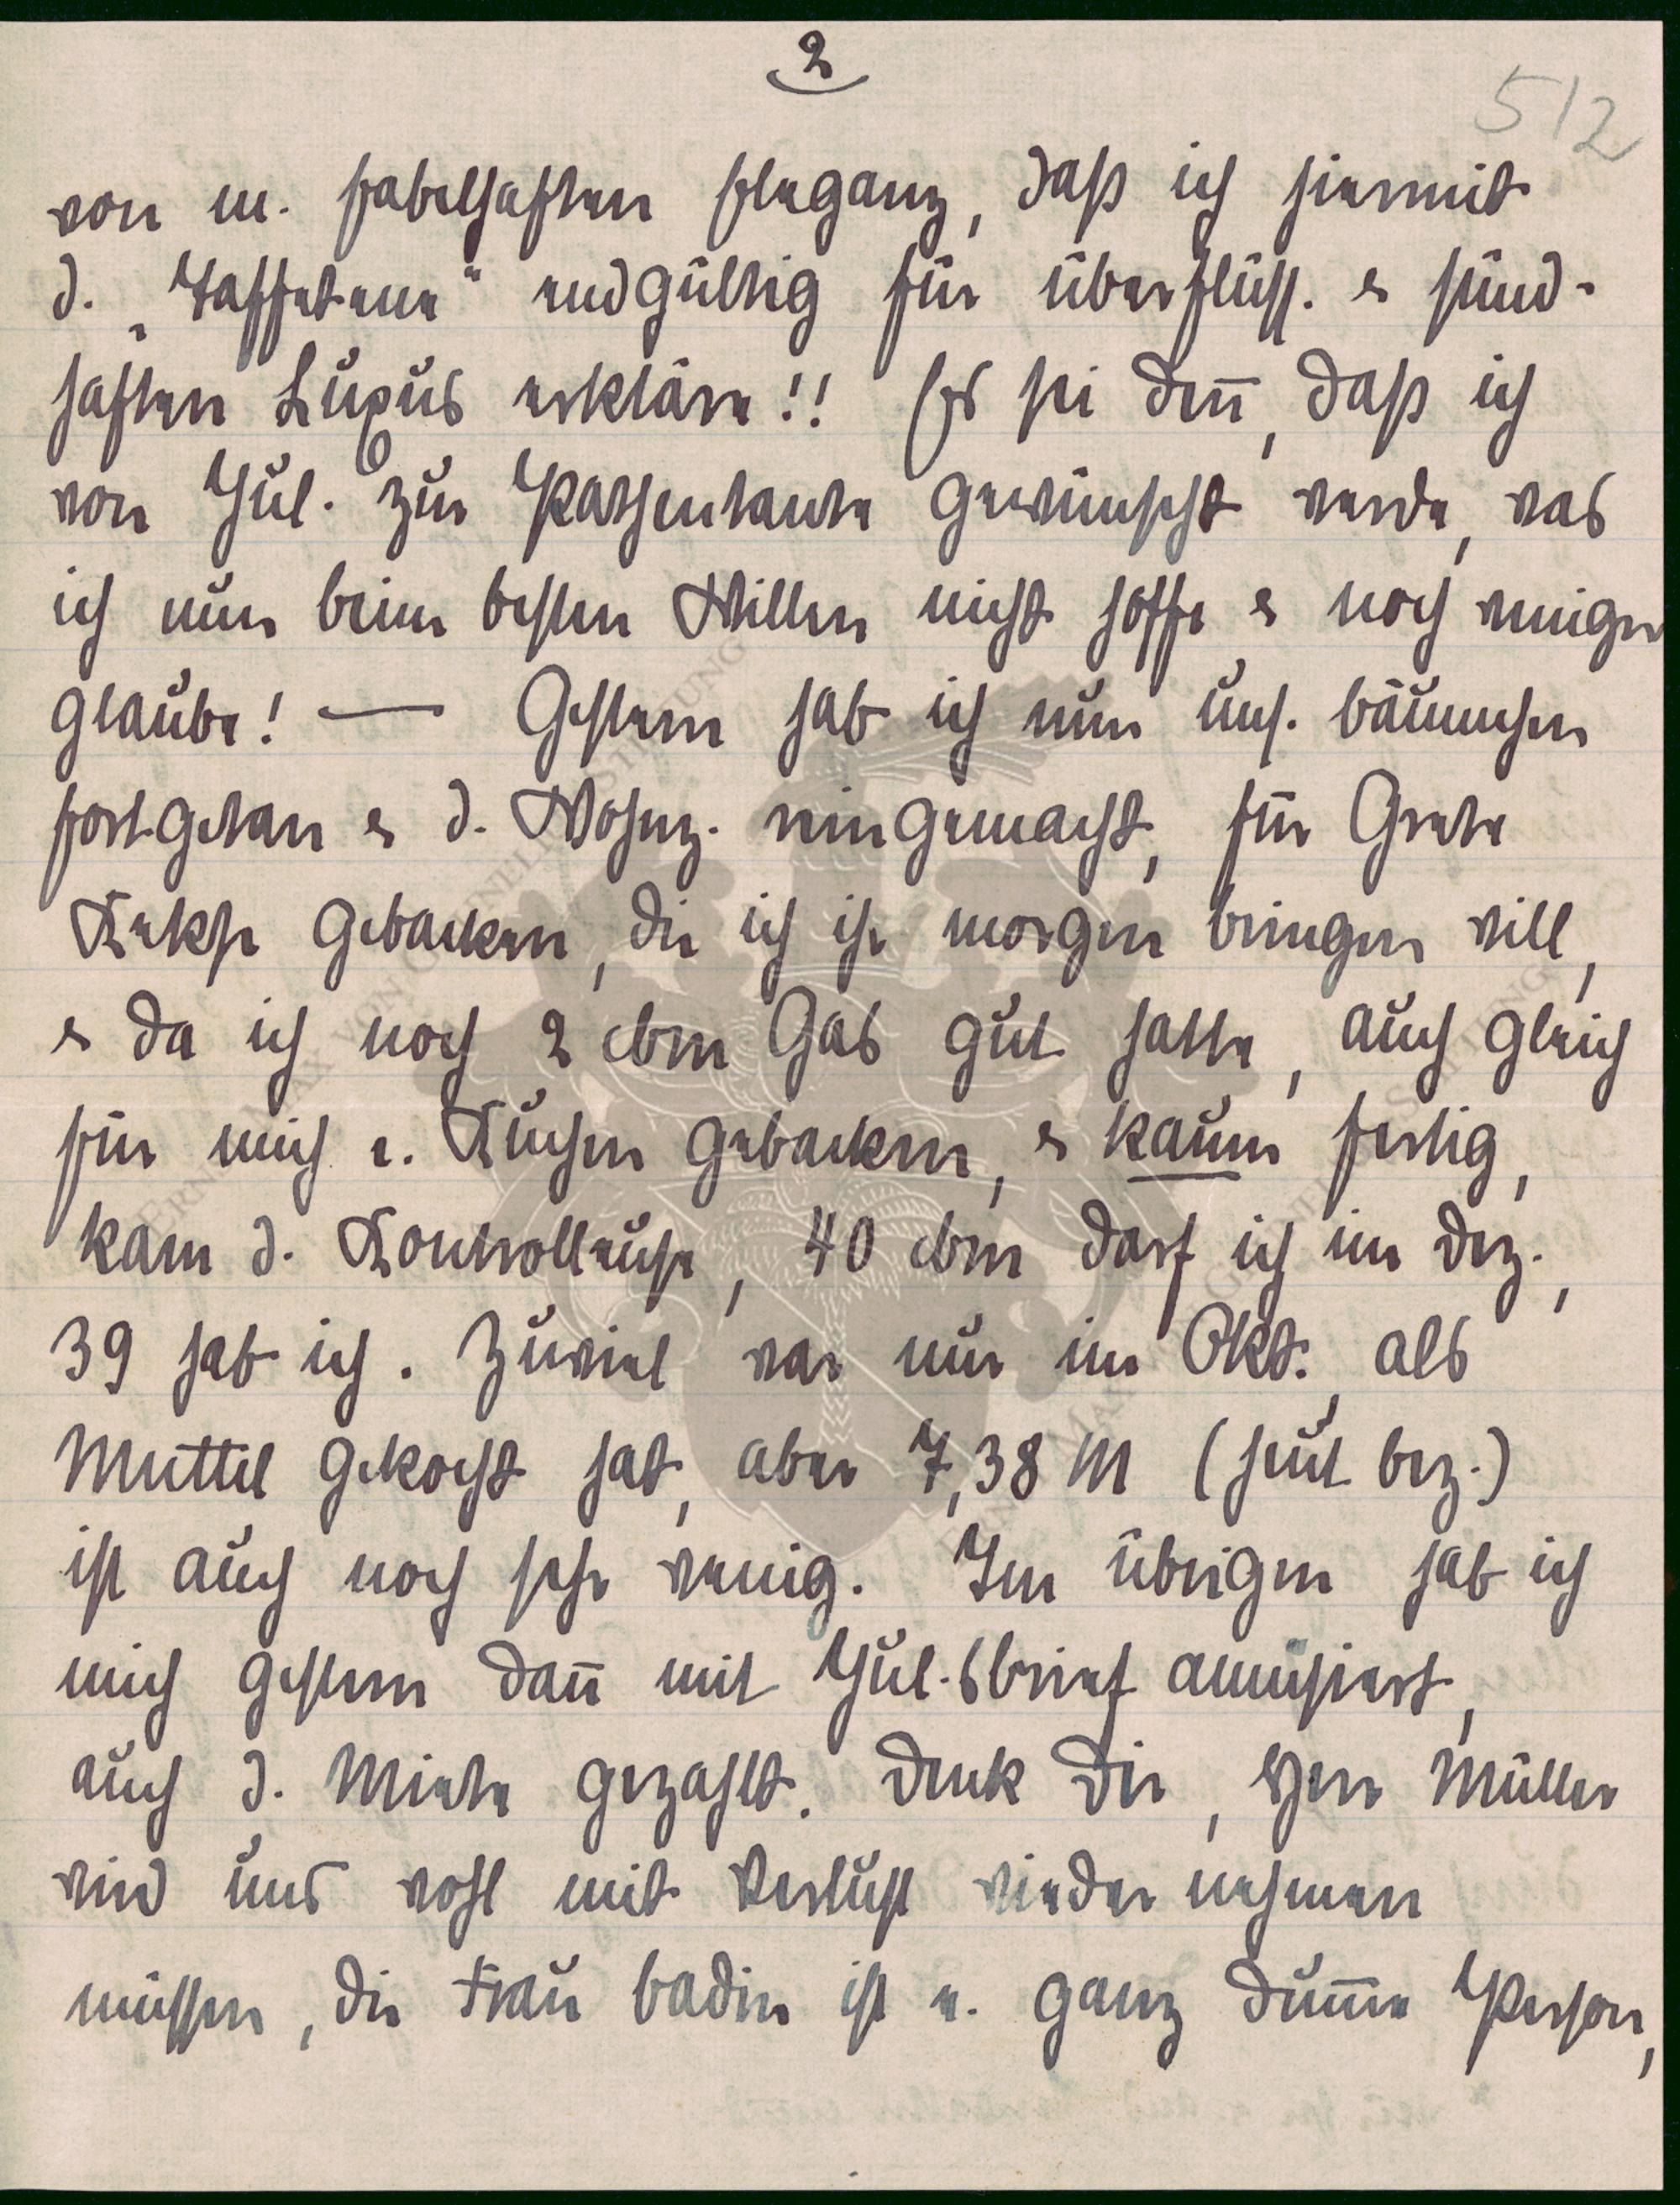 2
512
von m. fabelhaften Eleganz, daß ich hiermit
d. „Taffetene“ endgültig für überflüss. & sünd-
haften Luxus erkläre!! Es sei deñ, daß ich
von Jül. zur Pathentante gewünscht werde, was
ich nun beim besten Willen nicht hoffe & noch weniger
glaube! — Gestern hab ich nun uns. Bäumchen
fortgetan & d. Wohnz. reingemacht, für Grete
Kekse gebacken, die ich ihr morgen bringen will,
& da ich noch 2 cbm Gas gut hatte, auch gleich
für mich e. Kuchen gebacken, & kaum fertig,
kam d. Kontrolleuse, 40 cbm darf ich im Dez.,
39 hab ich. Zuviel war nur im Okt., als
Muttel gekocht hat, aber 7,38 M (heut bez.)
ist auch noch sehr wenig. Im übrigen hab ich
mich gestern dañ mit Jül.sbrief amüsiert,
auch d. Miete gezahlt. Denk Dir, Herr Müller
wird uns wohl mit Verlust wieder nehmen
müssen, die Frau Badin ist e. ganz dum̄e Person,